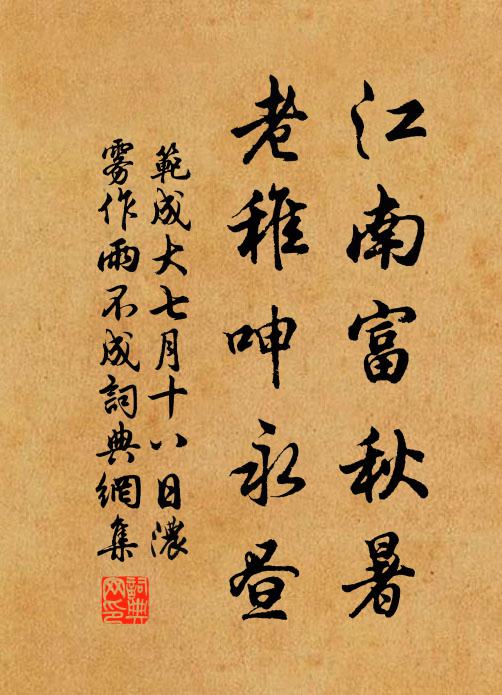 江南富秋暑
老稚呻永昼
範成大七月十八日濃
雾作雨不成詞典網集
詞典网印